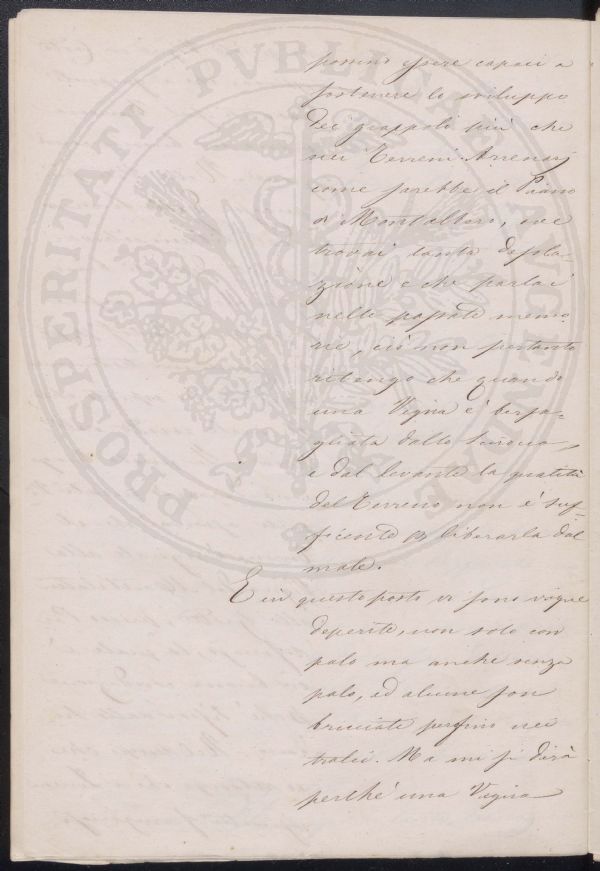 possino essere capaci a
sostenere lo sviluppo
dei grappoli più che
nei Terreni Arrenarj
come sarebbe il Piano
di Montalbero, ove
trovai tanta desola-
zione e che parlai
nelle passate memo-
rie, ciò non pertanto
ritengo che quando
una Vigna è bersa-
gliata dallo Scirocco,
e dal levante la qualità
del Terreno non è suf-
ficiente p liberarla dal
male.
E in questo posto vi sono vigne
deperite, non solo con
palo ma anche senza
palo, ed alcune son
bruciate perfino nei
tralci. Ma mi si dirà
perché una Vigna
PROSPERITATI PVBLICAE AVGENDAE